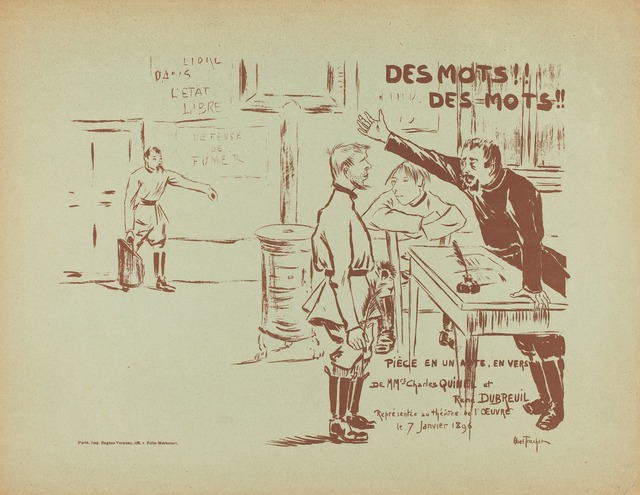 DES MOTS!!
DES MOTS!!
DANS
L'ETAT
LIBRE
DEFENSE
DE
FUMER
PIÈCE EN UN ACTE, EN VERS
DE MM.rs Charles QUINEL et
René DUBREUIL
Représentée au théâtre de l'ŒUVRE
le 7 Janvier 1896
Paris, Imp. Eugène Verneau, 108, r. Folie-Méricourt.